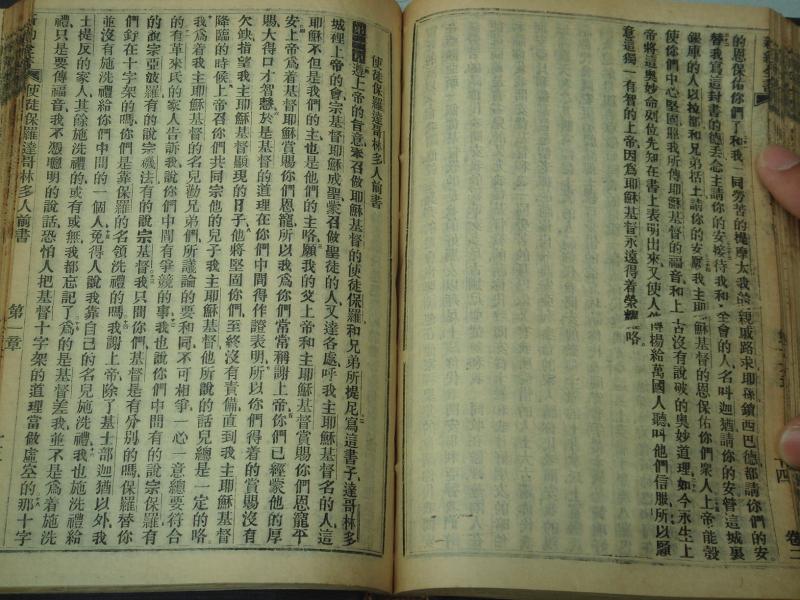 的恩保佑你們了和我、同勞苦的提摩太我的親戚路求耶孫鎖西巴德都請你們的安
替我寫這封書的德丟念主請你的安接待我和全會的人名叫迦猶請你的安管這城裏
銀庫的人以拉都和兄弟括土請你的安願我主耶穌基督的恩保佑你們衆人上帝能彀
使你們中心堅固照我所傳耶穌基督的福音和上古沒有說破的奧妙道理如今永生上
帝將這奧妙命列位先知在書上表明出來又使人揚給萬國人聽叫他們信服所以願
意這獨一有智的上帝因爲耶穌基督永遠得着榮耀咯
卷二
使徒保羅達哥林多人前書
遵上帝的旨意蒙召做耶穌基督的使徒保羅和兄弟所提尼寫這書子達哥林多
城裡上帝的會宗基督耶穌成聖蒙召做聖徒的人又達各處呼我主耶穌基督名的人這
耶穌不但是我們的主也是他們的主咯願我的父上帝和主耶穌基督賞賜你們恩寵平
安上帝爲着基督耶穌賞賜你們恩寵所以我爲你們常常稱謝上帝你們已經蒙他的厚
賜大得口才智慧於是基督的道理在你們中間得作證表明所以你們得着的賞賜沒有
欠缺指望我主耶穌基督顯現的日子他將堅固你們至終沒有責備直到我主耶穌基督
降臨的時候上帝召你們共同宗他的兒子我主耶穌基督他所說的話兒總是一定的咯
我爲着我主耶穌基督的名兒勸兄弟們所議論的要和同不可相爭一心一意總要符合
的有革來氏的家人告訴我說你們中間有爭競的事我也說你們中間有的說宗保羅有
的說宗亞波羅有的說宗磯法有的說宗基督我只問你們基督是有分別的嗎保羅替你
們釘在十字架的嗎你們是靠保羅的名領洗禮的嗎我謝上帝除了基士部迦猶以外我
並沒有施洗禮給你們中間的一個人免得人說我靠自己的名兒施洗禮我也施洗禮給
士提反的家人其餘施洗禮的或有或無我都忘記了爲的是基督差我並不是爲着施洗
禮只是要傳福音我不憑聰明的說話恐怕人把基督十字架的道理當做虛空的那十字
使徒保羅達哥林多人前書
第一章